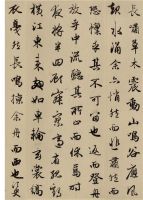 長嘯草木震動山鳴谷應風
起水涌余亦悄然而悲肅然而
恐凜乎其不可留也反而登舟
放乎中流聽其所止而休焉時
夜將半四顧寂寥適有孤鶴
橫江東來翅如車輪玄裳縞
衣戛然長鳴掠余舟而西也